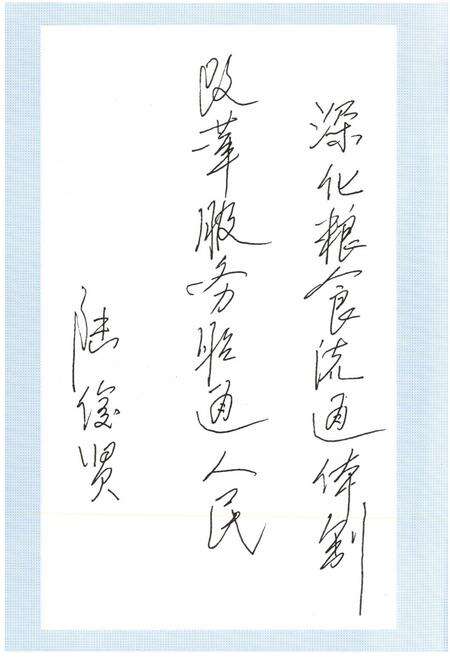 深化粮食流通体制
改革服务昭通人民
陆俊贤